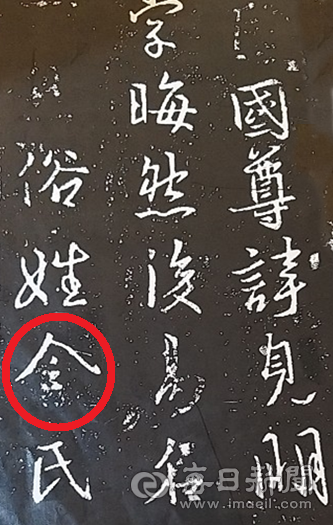 國尊諱見明
字晦然後易名
俗姓金氏
每日新聞
www.imaeil.com